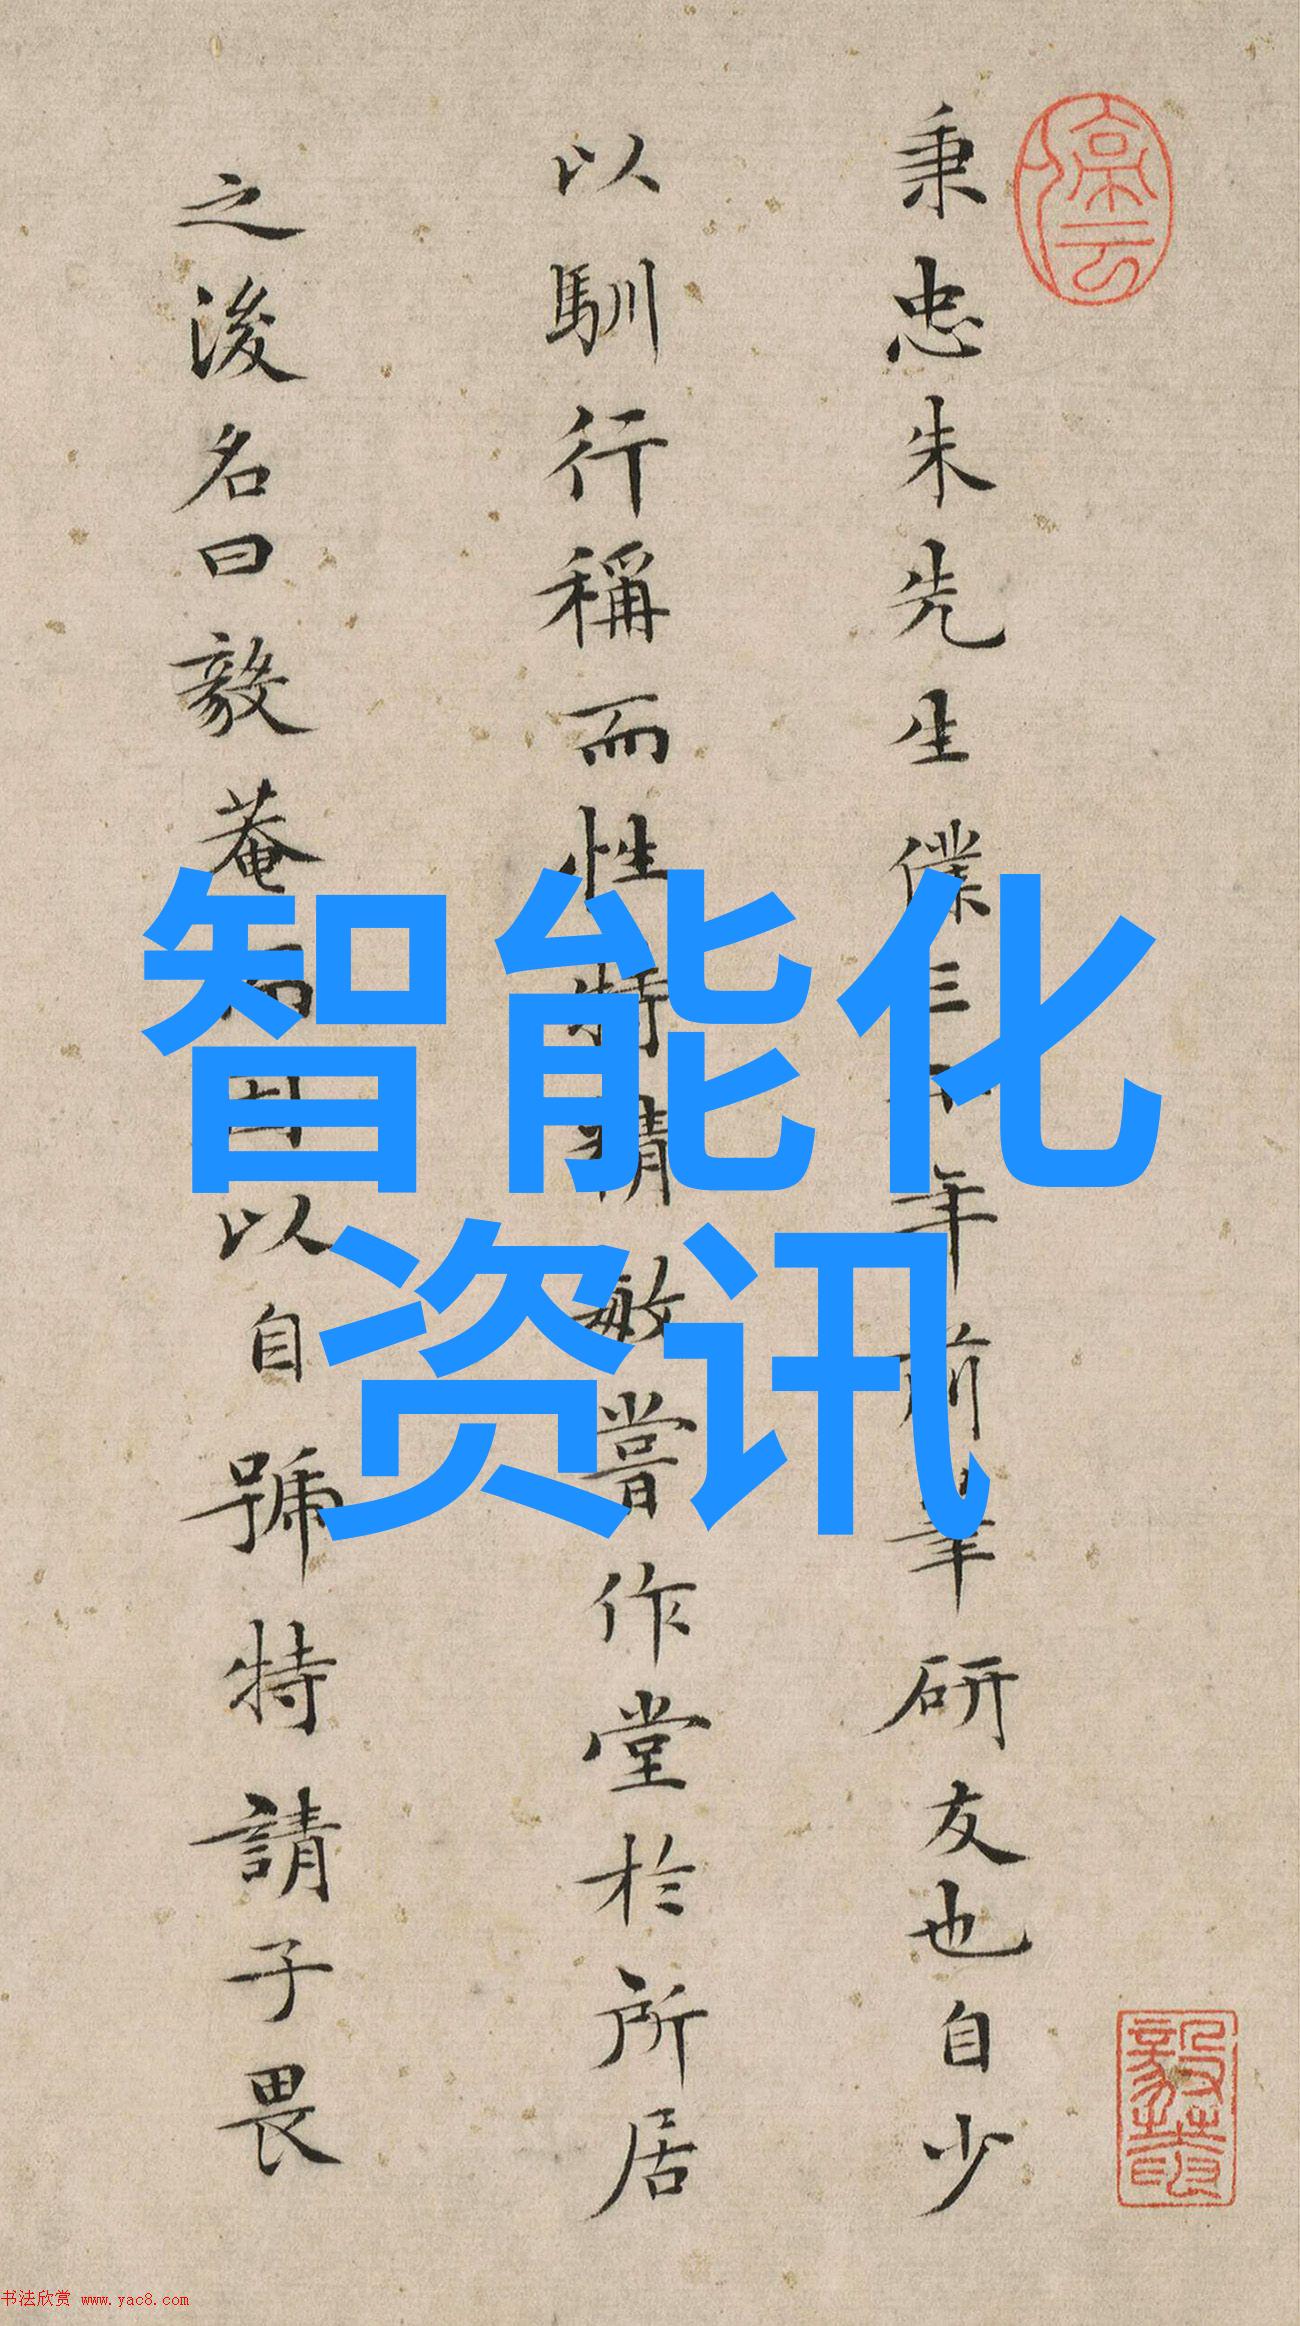 智能化
资讯
秉忠朱先生僕三十年前筆研友也自少
以馴行稱而性特精敏嘗作堂於所居
之後名曰毅菴 以自號特請予畏
書法欣赏 www.yac8.com